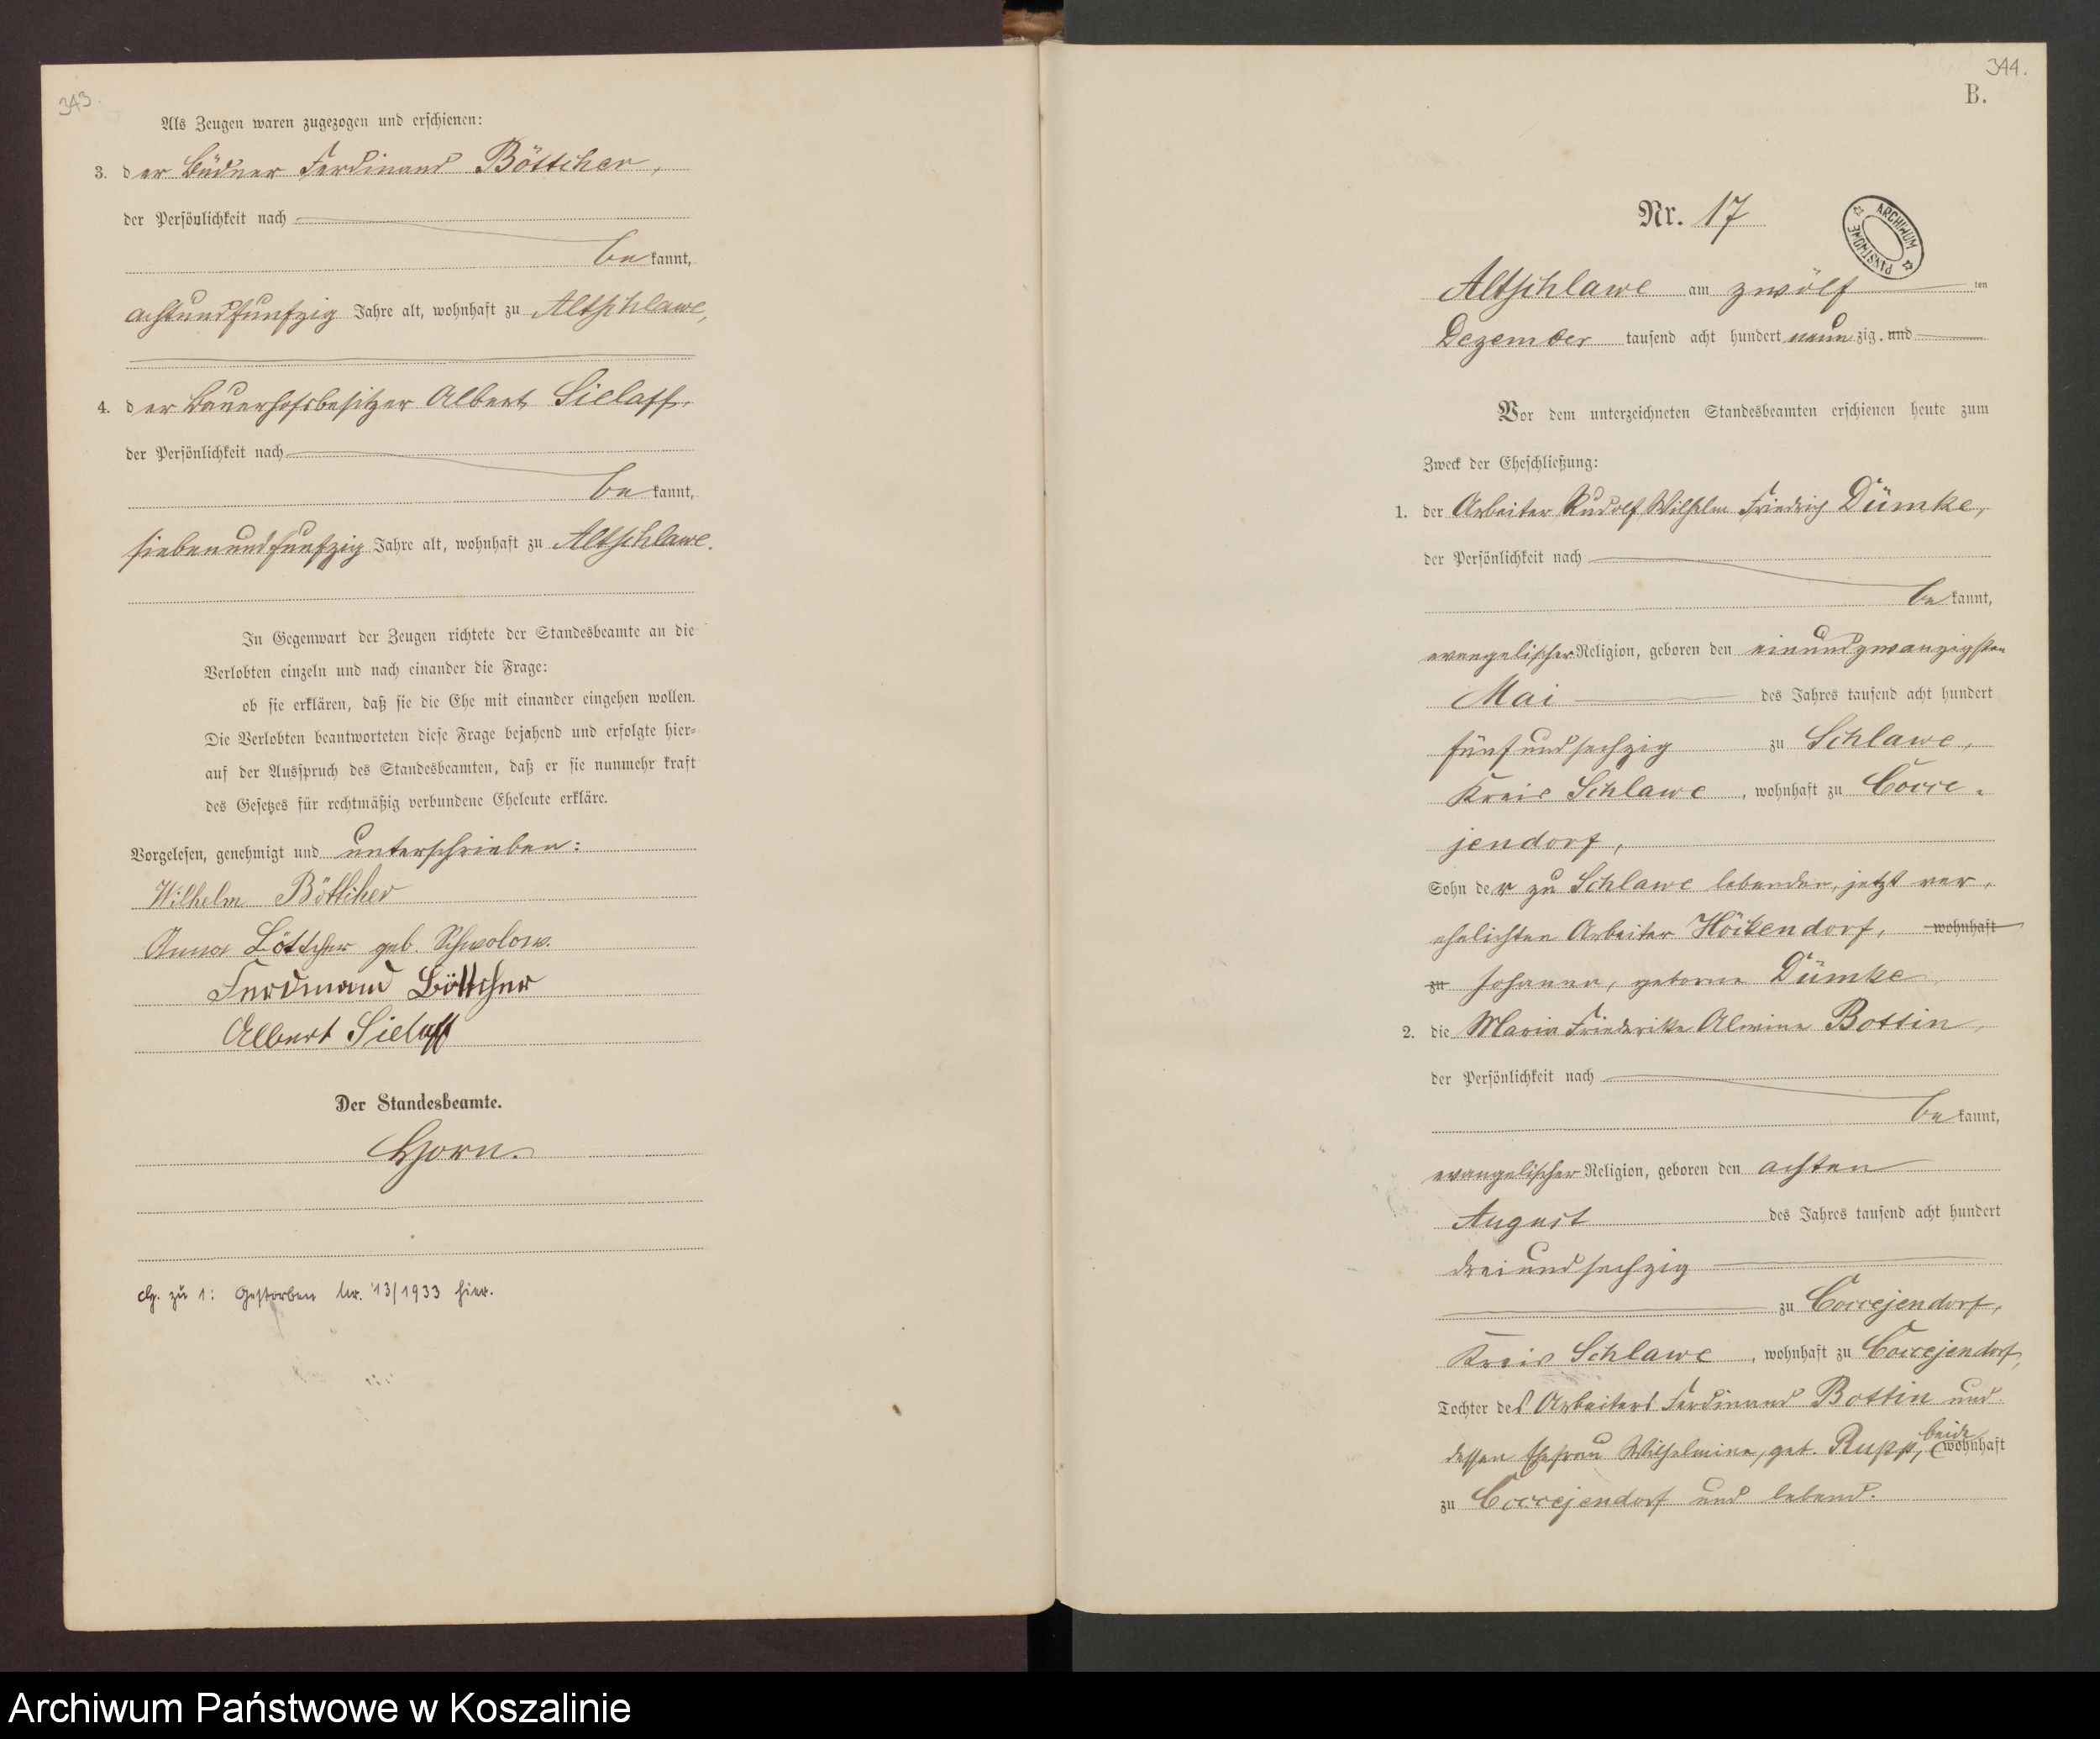 343.
Als Zeugen waren zugezogen und erschienen:
3. der Büdner Ferdinand Böttcher,
der Persönlichkeit nach
bekannt,
achtundfunfzig Jahre alt, wohnhaft zu Altschlawe,
4. der Bauerhofsbesitzer Albert Sielaff,
der Persönlichkeit nach
bekannt,
siebenundfunfzig Jahre alt, wohnhaft zu Altschlawe.
In Gegenwart der Zeugen richtete der Standesbeamte an die
Verlobten einzeln und nach einander die Frage:
ob sie erklären, daß sie die Ehe mit einander eingehen wollen.
Die Verlobten beantworteten diese Frage bejahend und erfolgte hier-
auf der Ausspruch des Standesbeamten, daß er sie nunmehr kraft
des Gesetzes für rechtmäßig verbundene Eheleute erkläre.
Vorgelesen, genehmigt und unterschrieben:
Wilhelm Böttcher
Anna Böttcher geb. Schwolow.
Ferdinand Böttcher
Albert Sielaff
Der Standesbeamte.
Horn.
zu 1: Gestorben Nr. 13/1933 hier.
344.
B.
Nr. 17
ARCHIWUM PAŃSTWOWE
Altschlawe am zwölf ten
Dezember tausend acht hundert neunzig. und
Vor dem unterzeichneten Standesbeamten erschienen heute zum
Zweck der Eheschließung:
1. der Arbeiter Rudolf Wilhelm Friedrich Dümke,
der Persönlichkeit nach
bekannt,
evangelischer Religion, geboren den einundzwanzigsten
Mai des Jahres tausend acht hundert
fünfundsechzig zu Schlawe,
Kreis Schlawe, wohnhaft zu Cocce-
jendorf,
Sohn der zu Schlawe lebenden, jetzt ver-
ehelichten Arbeiter Höckendorf, wohnhaft
zu Johanna, geborne Dümke
2. die Maria Friederike Alwine Bottin,
der Persönlichkeit nach
bekannt,
evangelischer Religion, geboren den achten
August des Jahres tausend acht hundert
dreiundsechzig
zu Coccejendorf,
Kreis Schlawe, wohnhaft zu Coccejendorf,
Tochter des Arbeiters Ferdinand Bottin und
dessen Ehefrau Wilhelmine, geb. Rupp, beide wohnhaft
zu Coccejendorf und lebend.
Archiwum Państwowe w Koszalinie